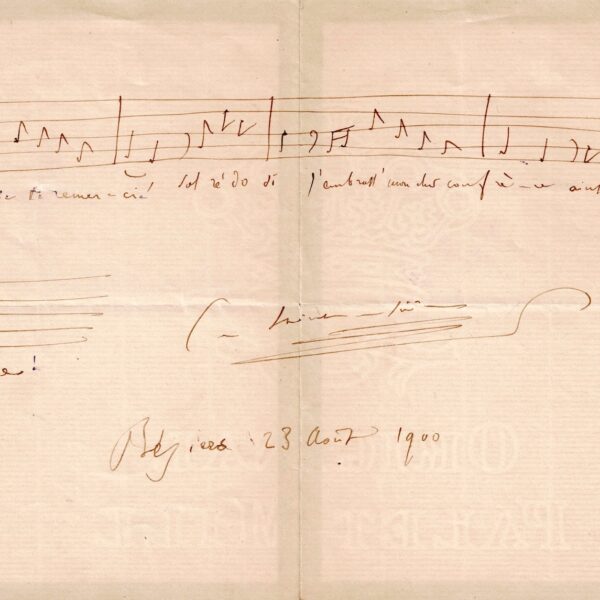 te remer-cié sol ré do si j'embrass' mon cher confrè-re
C. Saint-Saëns
Béziers 23 Août 1900